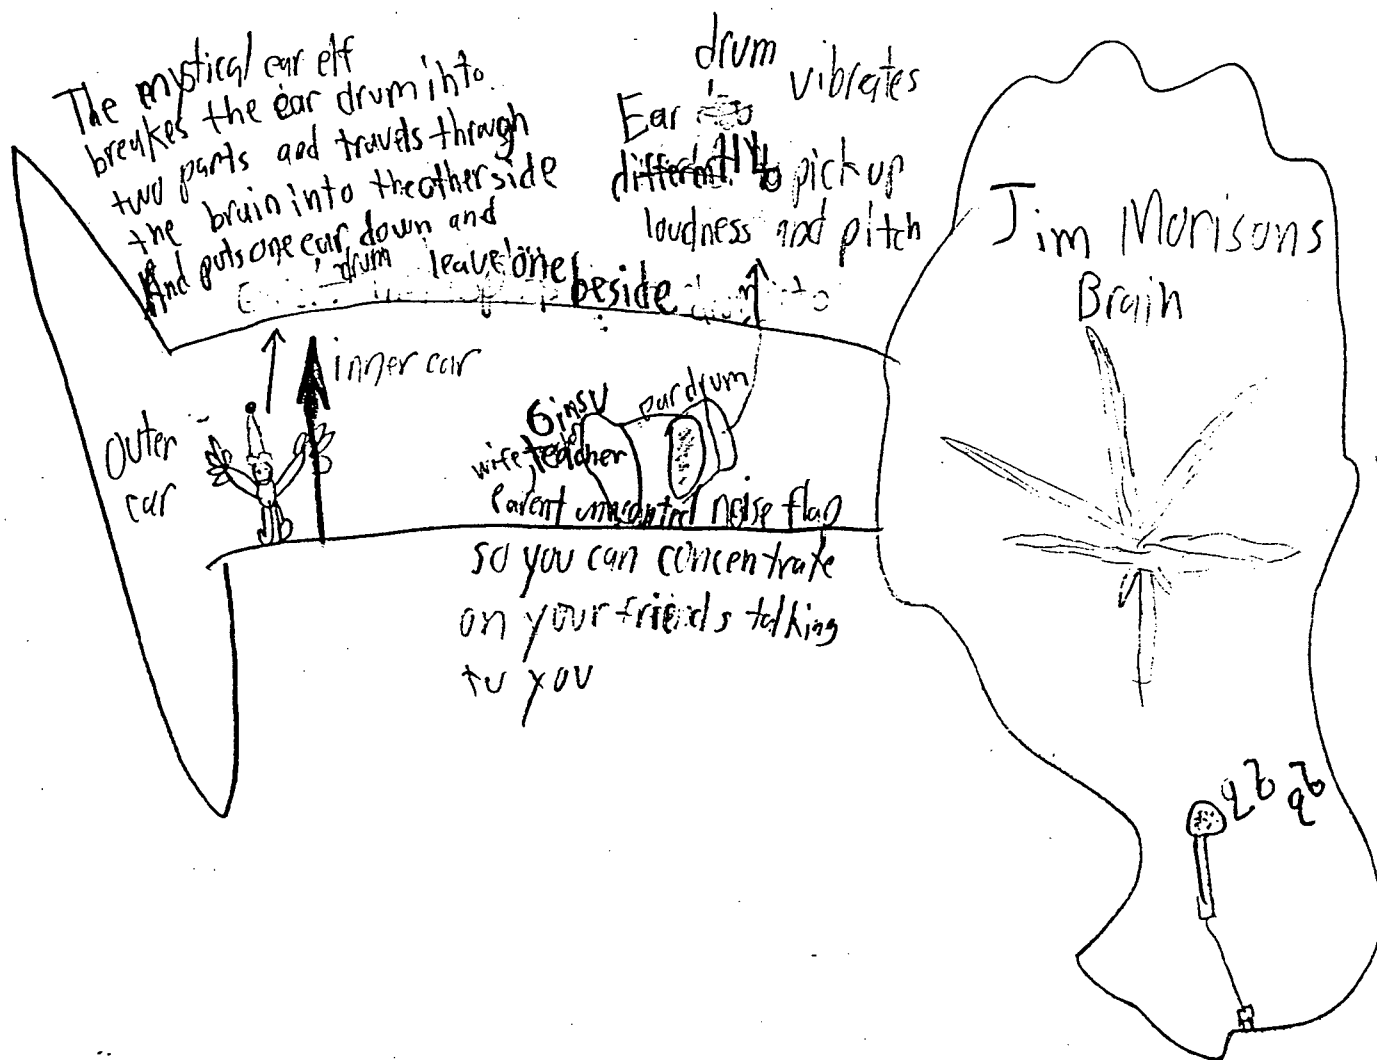 The mystical ear elf
breakes the ear drum into
two parts and travels through
the brain into the other side
And puts one ear drum down and
leave one
beside
drum
Ear vibrates
differently to pick up
loudness and pitch
Jim Morisons
Brain
inner ear
outer
ear
Ginsu
ear drum
wife, teacher
Parent noise flap
so you can concentrate
on your friends talking
to you